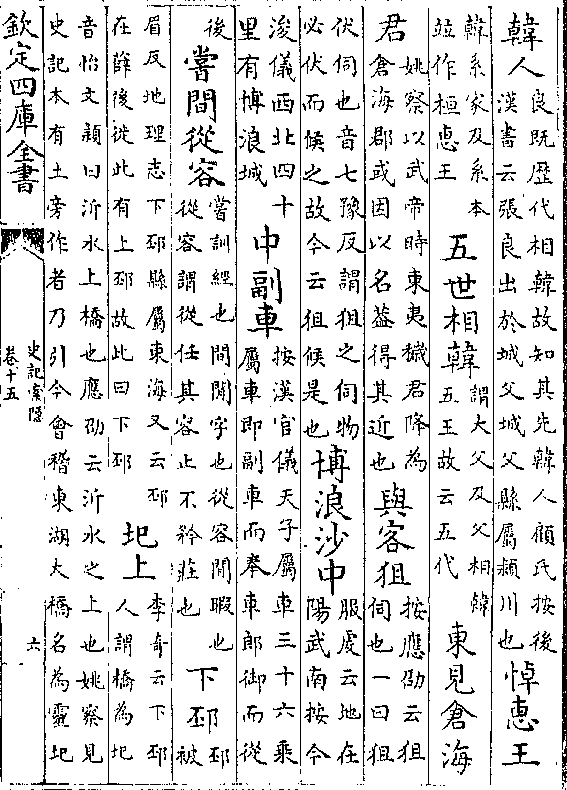 韓人
良既歴代相韓故知其先韓人顧氏按後
漢書云張良出於城父城父縣屬潁川也
悼惠王
韓系家及系本
竝作桓惠王
五世相韓
謂大父及父相韓
五王故云五代
東見倉海
君
姚察以武帝時東夷穢君降為
倉海郡或因以名葢得其近也
與客狙
按應劭云狙
伺也一曰狙
伏伺也音七豫反謂狙之伺物
必伏而候之故今云狙候是也
博浪沙中
服虔云地在
陽武南按今
浚儀西北四十
里有博浪城
中副車
按漢官儀天子屬車三十六乘
屬車即副車而奉車郎御而從
後
嘗間從容
嘗訓經也間閒字也從容閒暇也
從容謂從任其容止不矜莊也
下邳
邳
被
眉反地理志下邳縣屬東海又云邳
在薛後從此有上邳故此曰下邳
圯上
李奇云下邳
人謂橋為圯
音怡文穎曰沂水上橋也應劭云沂水之上也姚察見
史記本有土旁作者乃引今會稽東湖大橋名為靈圯
欽定四庫全書
史記索隱
卷十五
六